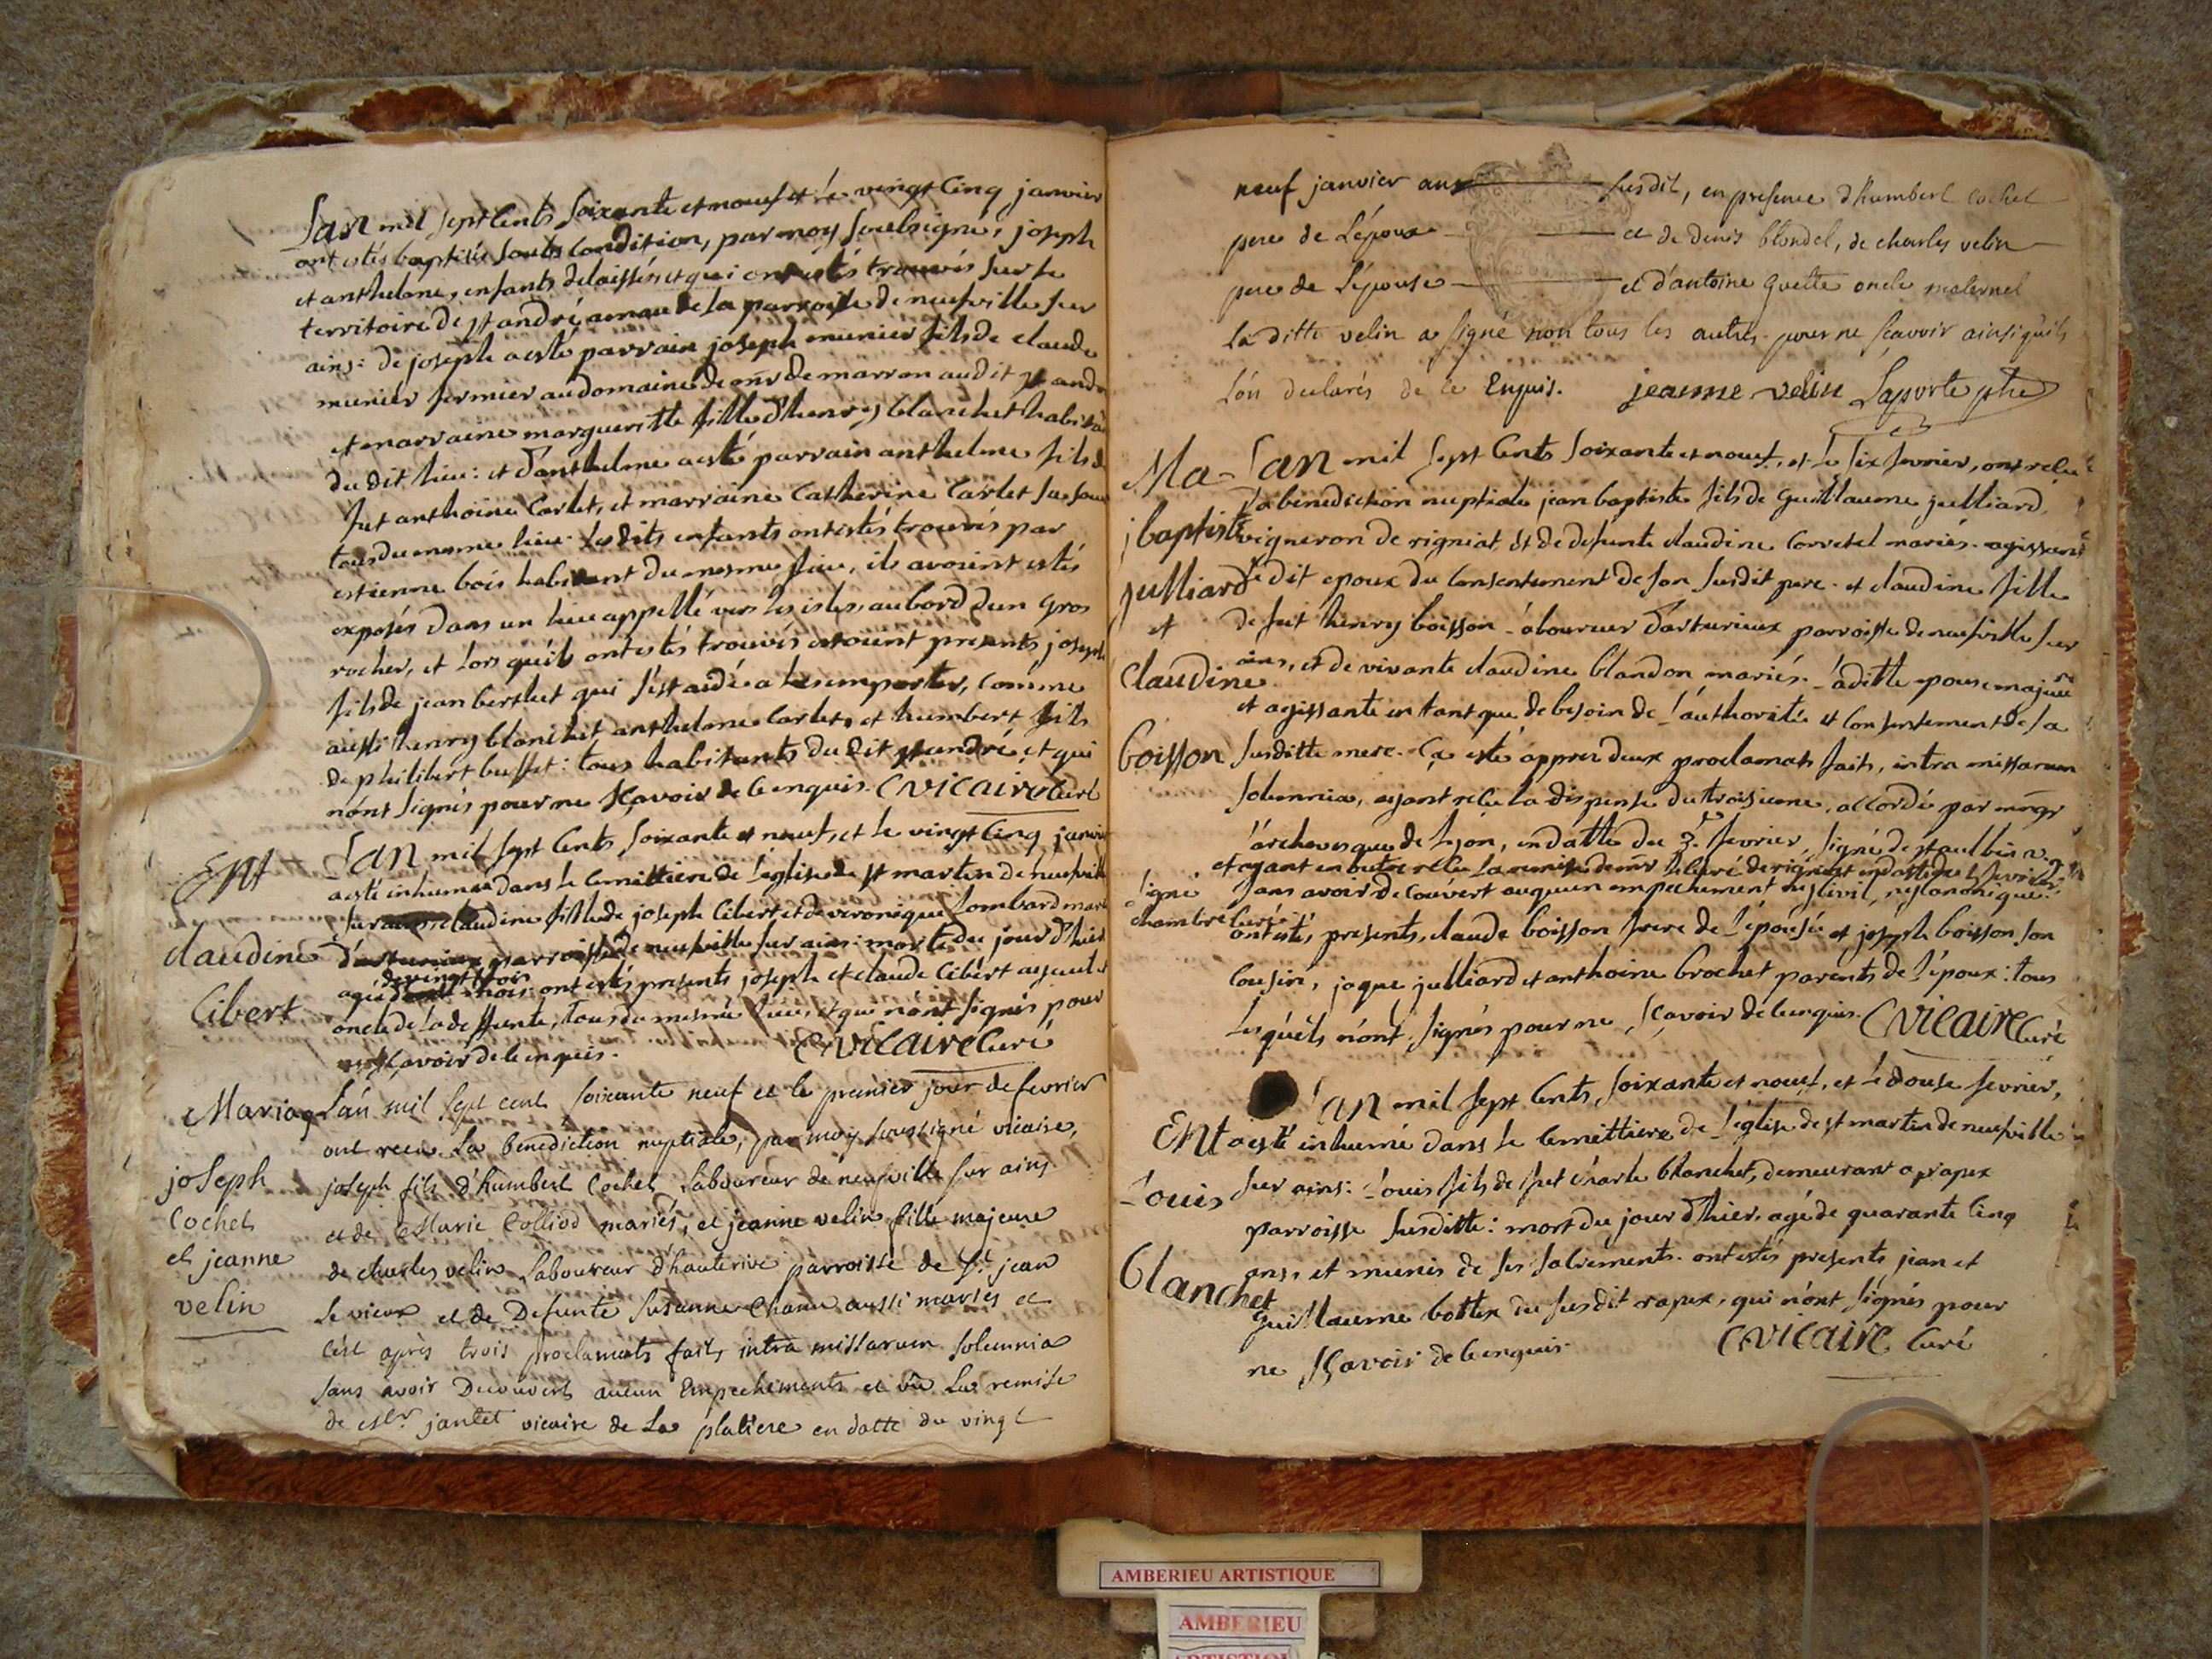 L'an mil sept Cents soixante et nouef et le vingt Cinq janvier
ont estés baptisés soubs Condition, par moy soubsigné, joseph
et anthelme, enfants delaissés et qui ont estés trouvés sur le
territoire de st andré, annexe de la parroisse de neufville sur
ains: de joseph a esté parrain joseph munier fils de claude
munier fermier au domaine de mr de marron au dit st andré
et marraine margueritte fille d'henry blanchet habitant
du dit lieu: et d'anthelme a esté parrain anthelme fils de
fut anthoine Carlet, et marraine Catherine Carlet sa soeur
tous du mesme lieu. les dits enfants ont estés trouvés par
estienne bois habitant du mesme lieu, ils avoient estés
exposés dans un lieu appellé vers les isles, au bord d'un gros
rocher, et lors qu'ils ont estés trouvés estoient presents joseph
fils de jean berthet qui s'est aidé a les emporter, Comme
aussi henry blanchet, anthelme Carlet, et humbert fils
de philibert buffet: tous habitants du dit st andré, et qui
n'ont signés pour ne sçavoir de ce enquis. C VICAIRE Curé
Ent L'an mil sept Cents soixante et neuf, et le vingt Cinq janvier
a esté inhumée dans le Cemittiere de l'église de st martin de neufville
sur ains, claudine fille de joseph Cibert et de veronique Lombard mariés
claudine d'arturieux parroisse de neufville sur ains: morte du jour d'hier
de vingt trois
Cibert agée de mois: ont estés presents joseph et claude Cibert ayeul et
oncle de la deffunte, tous du mesme lieu, et qui n'ont signés pour
ne sçavoir de ce enquis. C VICAIRE Curé
Mariag L'an mil sept cent soixante neuf et le premier jour de fevrier
ont receu La benediction nuptiale, par moy soussigné vicaire,
joseph joseph fils d'humbert Cochet Laboureur de neufville sur ains
Cochet et de Marie Colliod mariés, et jeanne velin fille majeure
et jeanne de charles velin Laboureur d'hauterive parroisse de St jean
velin le vieux et de Defunte susanne Chanu aussi mariés et
c'est après trois proclamats faits intra missarum solemnia
sans avoir Decouvert aucun Empechements et vû La remise
de Mr jantet vicaire de La platiere en datte du vingt
neuf janvier an susdit, en presence d'humbert Cochet
pere de L'époux et de denis blondel, de charles velin
pere de L'épouse et d'antoine guette oncle maternel
La ditte velin a signé non tous les autres pour ne sçavoir ainsi qu'ils
l'on declarés de ce Enquis. jeanne velin Laporte ptre
Ma- L'an mil sept Cents soixante et nouef, et le six fevrier, ont recu
la benediction nuptiale jean baptiste fils de guillaume julliard,
jbaptiste vigneron de rigniat, et de defunte claudine Corretel mariés. agissant
julliard le dit epoux du Consentement de son susdit pere. et claudine fille
et de fut henry boisson laboureur d'arturieux parroisse de neufville sur
Claudine ains, et de vivante claudine blandon mariés. laditte epouse majeure
et agissante en tant que de besoin de l'authorité et Consentement de sa
boisson susditte mere. Ça esté appres deux proclamats faits, intra missarum
solemnia, ayant recu la dispense du troisieme, accordé par mongr
l'archevesque de lyon, en datte du 3e fevrier, signé de st aulbin v. g.
et ayant en outre recu la remise de mr le Curé de rigniat en datte du 5 fevrier
signé sans avoir decouvert auquun empechement ny Civil, ny Canonique.
chambre Curé. ont estés presents, claude boisson frere de l'épouse et joseph boisson son
Cousin, jaque julliard et anthoine brochet parents de l'époux: tous
lesquels n'ont signés pour ne sçavoir de ce enquis. C VICAIRE Curé
L'an mil sept Cents soixante et nouef, et le douse fevrier,
Ent a esté inhumé dans le Cemittiere de l'église de st martin de neufville
Louis sur ains: Louis fils de fut Charle blanchet, demeurant a rapex
parroisse susditte: mort du jour d'hier, agé de quarante Cinq
blanchet ans, et munis de ses sacrements. ont estés presents jean et
guillaume bottex du susdit rapex, qui n'ont signés pour
ne sçavoir de ce enquis. C VICAIRE Curé
AMBERIEU ARTISTIQUE
AMBERIEU
ARTISTIQUE